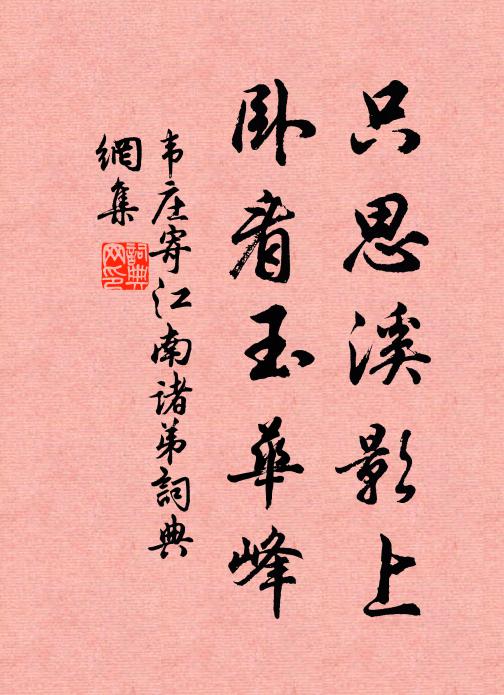 只思溪影上
卧看玉華峰
韦庄寄江南诸弟詞典
網集
詞典
网印